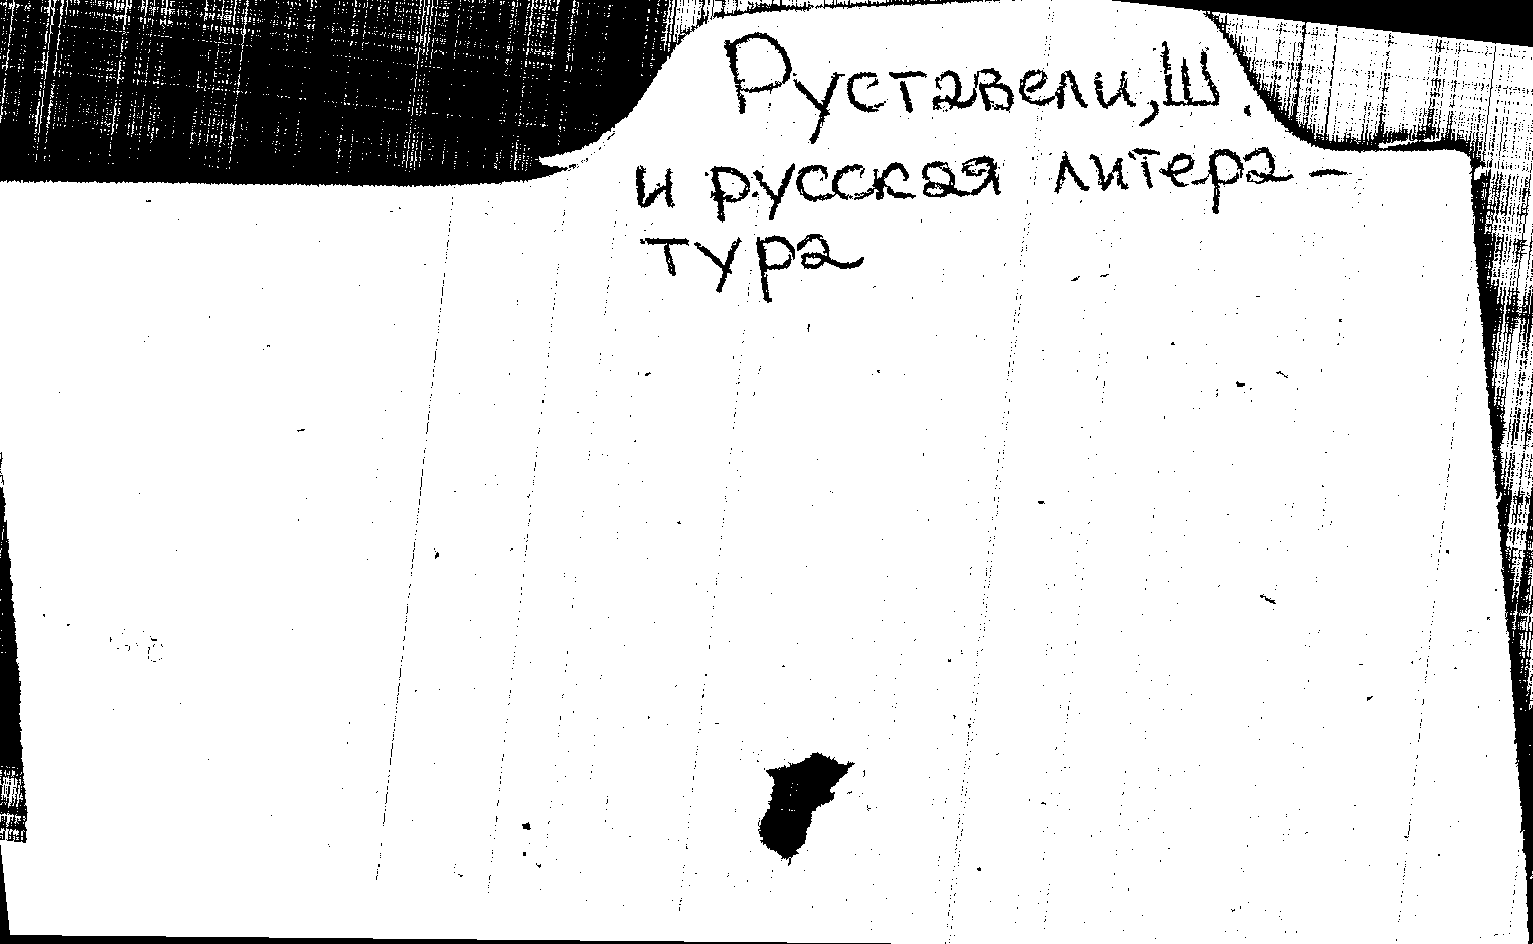 Руставели, Ш.
и русская литера-
тура